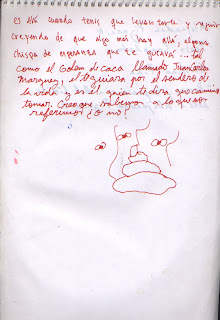 es ahí cuando tenés que levantarte y seguir
creyendo de que algo más hay allá, alguna
chispa de esperanza que te guiará... tal
como el Golem de caca llamado Juan Carlos
Marquez, el te guiara por el sendero de
la vida y es el quien te dira que camino
tomar. Creo que sabemos a lo que nos
referimos ¿o no?